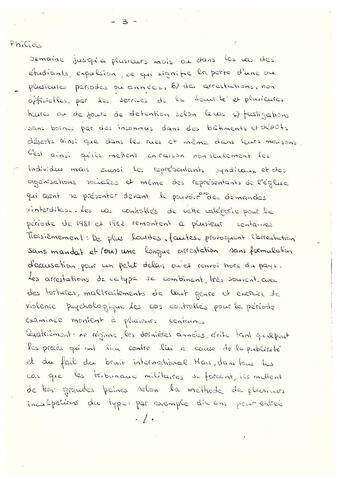 - 3 -
Philies
semaine jusqu'à plusieurs mois ou dans les cas des
étudiants, expulsion, ce qui signifie la perte d'une ou
plusieures periodes ou années, 6) des arrestations, non
officielles, par les services de la sécurité et plusieures
heures ou de jours de détention selon le cas c) fustigations
sans bornes par des inconnus dans des bâtiments et dépots
déserts ainsi que dans les rues et même dans leurs maisons
C'est ainsi qu'ils mettent en raison non seulement les
individus mais aussi les représentants syndicaux et des
organisations sociales et même des représentants de l'église
qui osent se présenter devant le pouvoir des demandes
interdites. Les cas contrôlés de cette catégorie pour la
période de 1981 et 1982 remontent à plusieurs centaines
Troisièmement: De plus lourdes fautes, provoquent l'arrestation
sans mandat et (ou) une longue arrestation sans formulation
d'accusation, par un petit delais ou et renvoi hors du pays.
Les arrestations de ce type se combinent, très souvent, avec
des tortures, maltraitements de tout genre et exercice de
violence psychologique. Les cas contrôlés pour la période
examinée montent à plusieurs centaines
Quatrièmement: Le régime, les dernières années, évite tant que peut
les procès qui ont lieu contre lui à cause de la publicité
et du fait du bruit international. Mais, dans tous les
cas que les tribunaux militaires se forcent, ils mettent
de très grandes peines selon la méthode de plusieurs
inculpations du type: par exemple dix ans pour entrée
./.